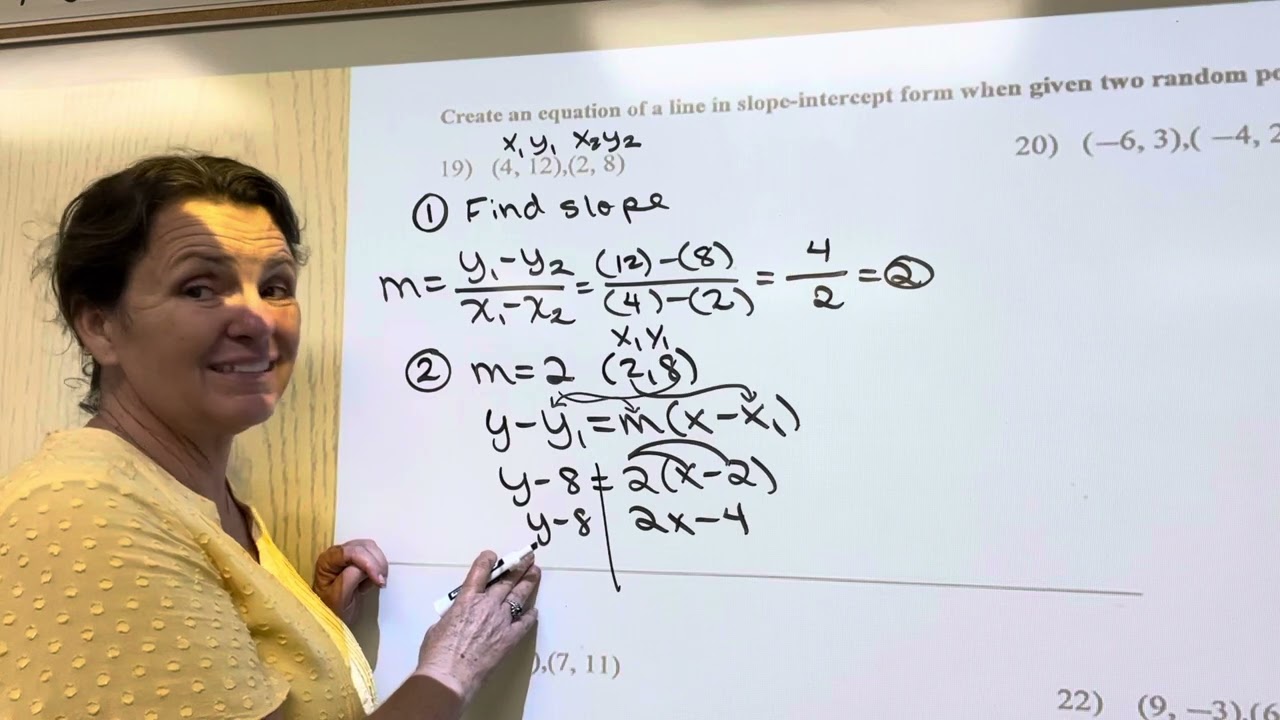 Create an equation of a line in slope-intercept form when given two random
x₁ y₁ x₂ y₂
19) (4, 12),(2, 8)
20) (−6, 3),( −4, 2
① Find slope
m = y₁-y₂/x₁-x₂ = (12)-(8)/(4)-(2) = 4/2 = 2
x₁ y₁
② m=2 (2,8)
y-y₁=m(x-x₁)
y-8=2(x-2)
y-8 2x-4
),(7, 11)
22) (9, −3),(6